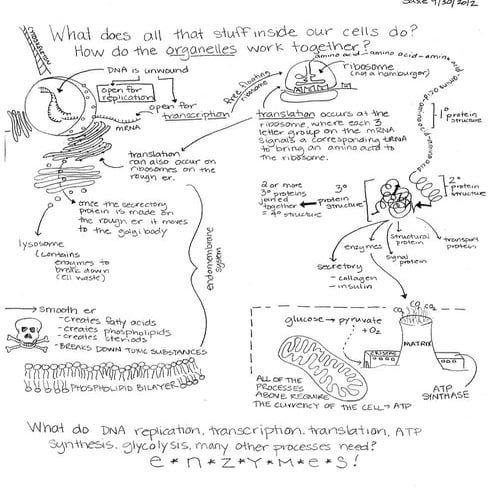 9/30/2012
What does all that stuff inside our cells do?
How do the organelles work together?
TRANSLATION
DNA is unwound
open for
replication
open for
transcription
mRNA
free floating
ribosome
amino acid - amino acid - amino
ribosome
(not a hamburger)
translation occurs at the
ribosome, where each 3
letter group on the mRNA
signals a corresponding tRNA
to bring an amino acid to
the ribosome.
1° protein
structure
2° protein
structure
3°
protein
structure
2 or more
3° proteins
joined
together
= 4° structure
translation
can also occur on
ribosomes on the
rough er.
once the secretory
protein is made on
the rough er it moves
to the golgi body
lysosome
(contains
enzymes to
break down
(cell waste)
endomembrane
system
structural
protein
transport
protein
enzymes
signal
protein
secretory
- collagen
- insulin
smooth er
- creates fatty acids
- creates phospholipids
- creates steroids
- BREAKS DOWN TOXIC SUBSTANCES
PHOSPHOLIPID BILAYER
CO2 CO2 CO2
glucose → pyruvate
+O2
MATRIX
CRISTAE
ATP
SYNTHASE
ALL OF THE
PROCESSES
ABOVE REQUIRE
THE CURRENCY OF THE CELL → ATP
What do DNA replication, transcription, translation, ATP
synthesis, glycolysis, many other processes need?
e*n*z*y*m*e*s!